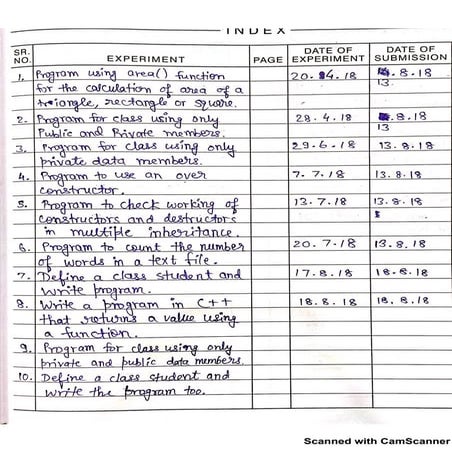 INDEX
SR. NO. EXPERIMENT PAGE DATE OF EXPERIMENT DATE OF SUBMISSION
1. Program using area() function 20. 4. 18 8. 18
for the calculation of area of a 13
triangle, rectangle or square.
2. Program for class using only 28. 4. 18 8. 18
Public and Private members. 13
3. Program for class using only 29-6-18 13. 8. 18
private data members.
4. Program to use an over 7. 7. 18 13. 8. 18
constructor.
5. Program to check working of 13. 7. 18 13. 8. 18
constructors and destructors
in multiple inheritance.
6. Program to count the number 20. 7-18 13. 8. 18
of words in a text file.
7. Define a class student and 17. 8. 18 18-8-18
write program.
8. Write a program in C++ 18. 8. 18 18. 8. 18
that returns a value using
a function.
9. Program for class using only
private and public data members.
10. Define a class student and
write the program too.
Scanned with CamScanner